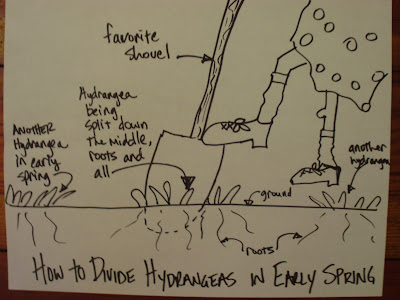 favorite
shovel
Hydrangea
being
split down
the middle,
roots and
all
ANOTHER
Hydrangea
in early
spring
another
hydrangea
ground
roots
HOW TO DIVIDE HYDRANGEAS IN EARLY SPRING